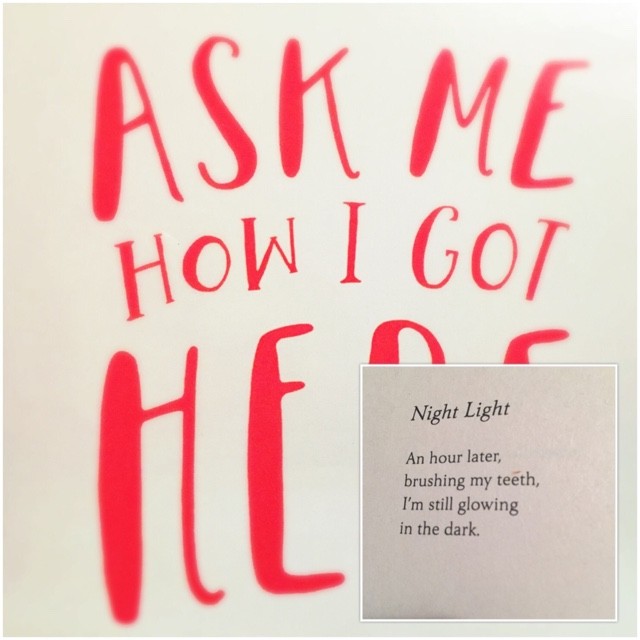 ASK ME
HOW I GOT
HERE
Night Light
An hour later,
brushing my teeth,
I'm still glowing
in the dark.